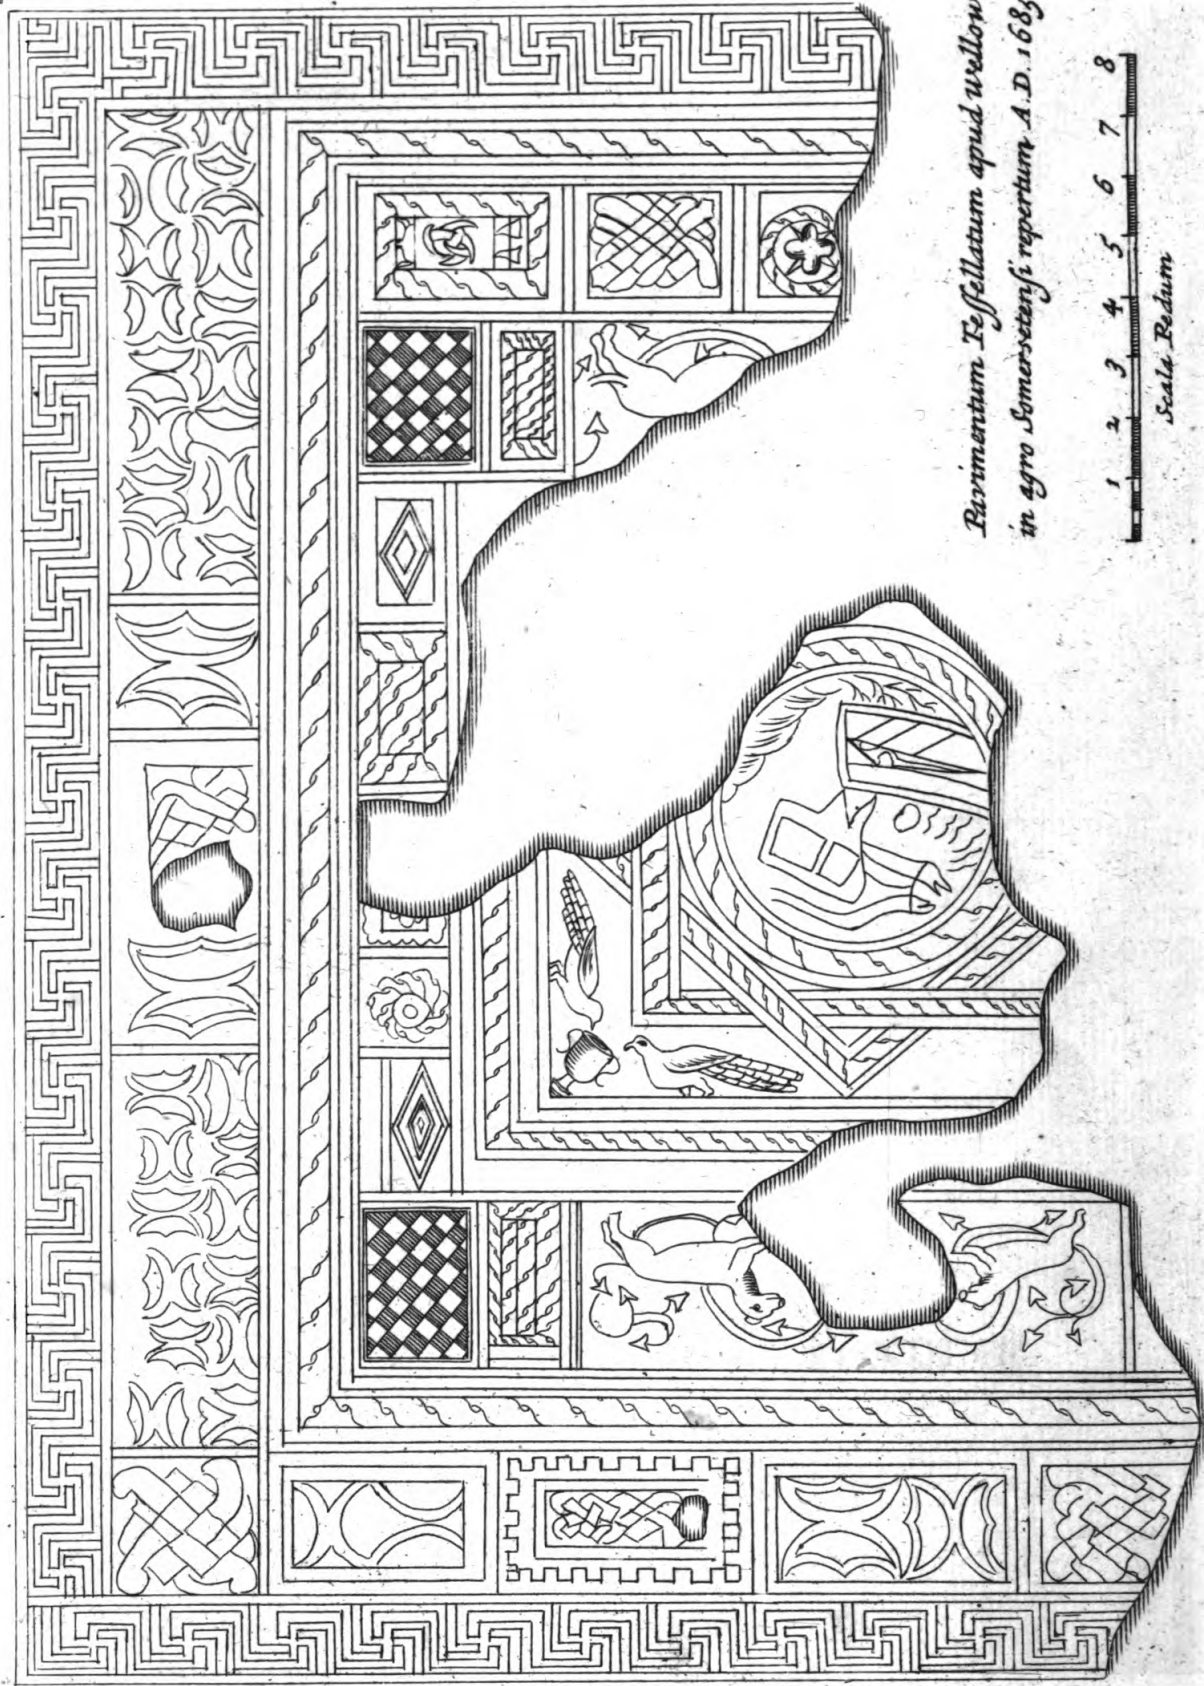 Pavimentum Teſſellatum apud Wellow
in agro Somersetenſi repertum A.D. 1685
1 2 3 4 5 6 7 8
Scala Pedum